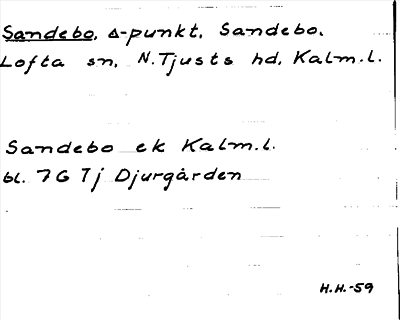 Sandebo, Δ-punkt, Sandebo,
Lofta sn, N. Tjusts hd, Kalm.l.
Sandebo ek Kalm.l.
bl. 7G 7j Djurgården
H.H.-59